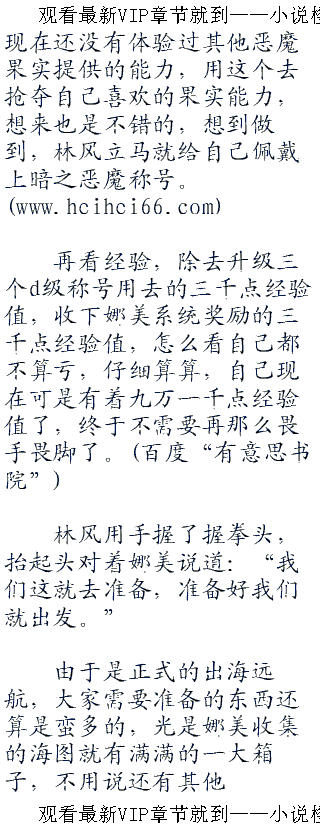 观看最新VIP章节就到——小说检
现在还没有体验过其他恶魔
果实提供的能力，用这个去
抢夺自己喜欢的果实能力，
想来也是不错的，想到做
到，林风立马就给自己佩戴
上暗之恶魔称号。
(www.hcihci66.com)
再看经验，除去升级三
个d级称号用去的三千点经验
值，收下娜美系统奖励的三
千点经验值，怎么看自己都
不算亏，仔细算算，自己现
在可是有着九万一千点经验
值了，终于不需要再那么畏
手畏脚了。(百度“有意思书
院”)
林风用手握了握拳头，
抬起头对着娜美说道：“我
们这就去准备，准备好我们
就出发。”
由于是正式的出海远
航，大家需要准备的东西还
算是蛮多的，光是娜美收集
的海图就有满满的一大箱
子，不用说还有其他
观看最新VIP章节就到——小说检